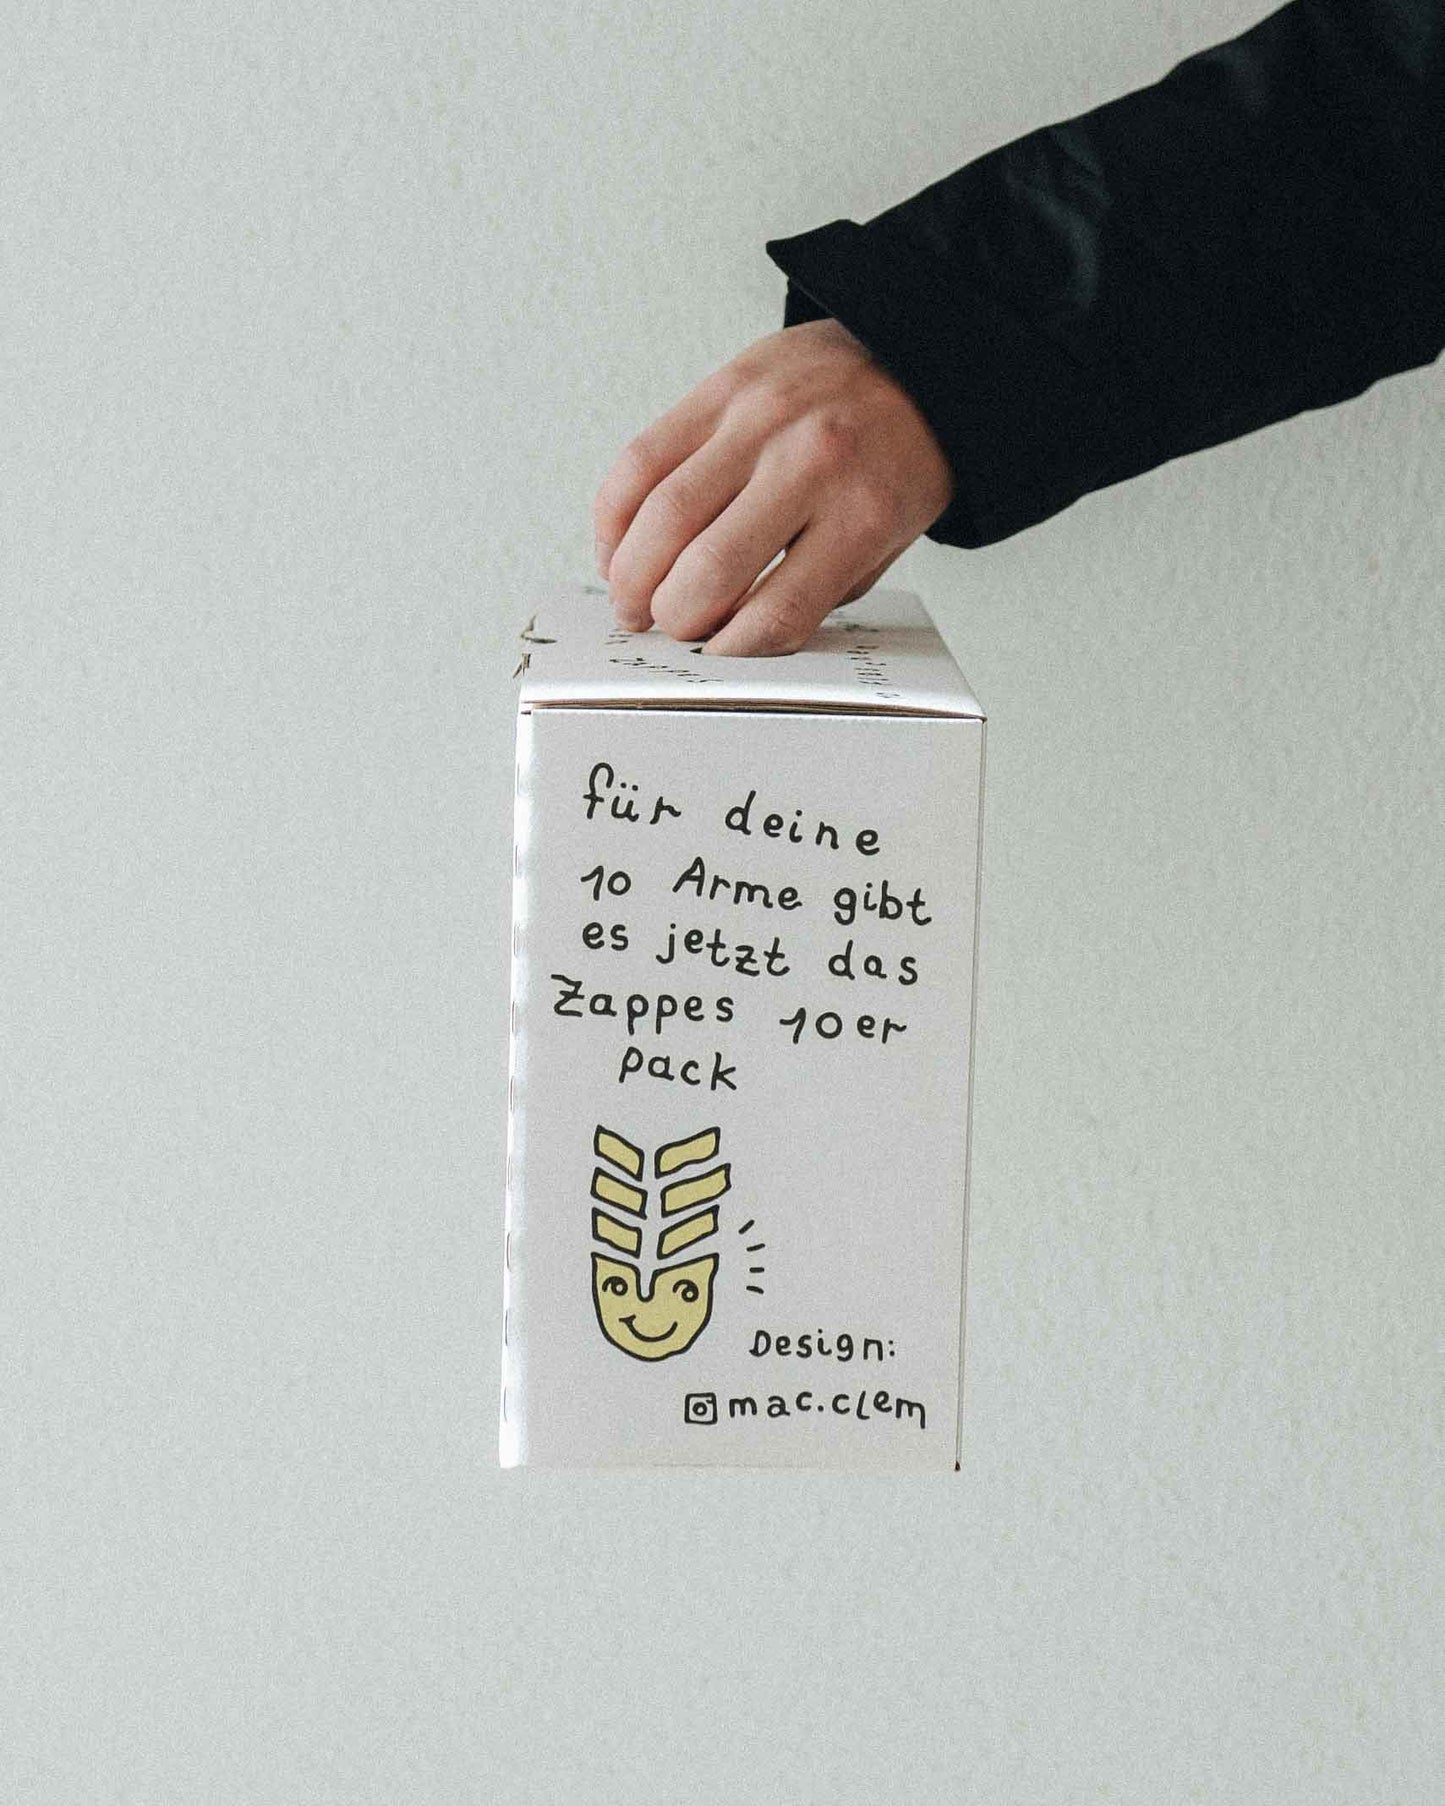 Zappes
für deine
10 Arme gibt
es jetzt das
Zappes 10er
pack
Design:
mac.clem